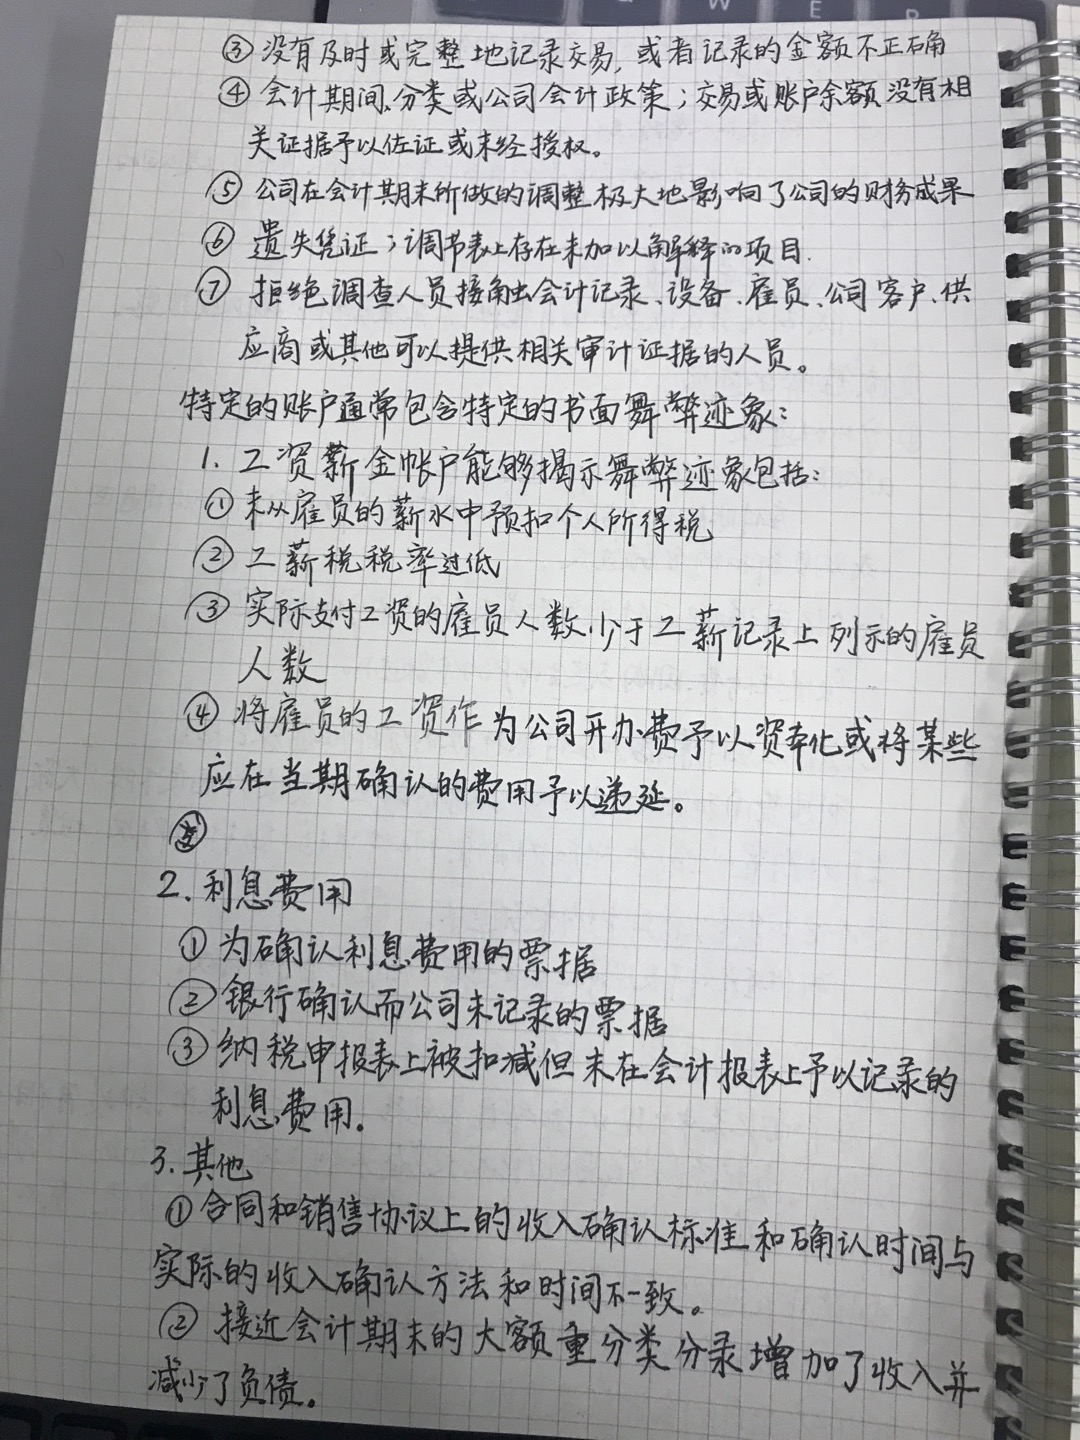 ③ 没有及时或完整地记录交易，或者记录的金额不正确
④ 会计期间、分类或公司会计政策；交易或账户余额没有相
关证据予以佐证或未经授权。
⑤ 公司在会计期末所做的调整极大地影响了公司的财务成果
⑥ 遗失凭证；调节表上存在未加以解释的项目.
⑦ 拒绝调查人员接触会计记录、设备、雇员、公司客户、供
应商或其他可以提供相关审计证据的人员。
特定的账户通常包含特定的书面舞弊迹象：
1. 工资薪金帐户能够揭示舞弊迹象包括：
① 未从雇员的薪水中预扣个人所得税
② 工薪税税率过低
③ 实际支付工资的雇员人数少于工薪记录上列示的雇员
人数
④ 将雇员的工资作为公司开办费予以资本化或将某些
应在当期确认的费用予以递延。
2. 利息费用
① 为确认利息费用的票据
② 银行确认而公司未记录的票据
③ 纳税申报表上被扣减但未在会计报表上予以记录的
利息费用.
3. 其他
① 合同和销售协议上的收入确认标准和确认时间与
实际的收入确认方法和时间不一致。
② 接近会计期末的大额重分类分录增加了收入并
减少了负债。